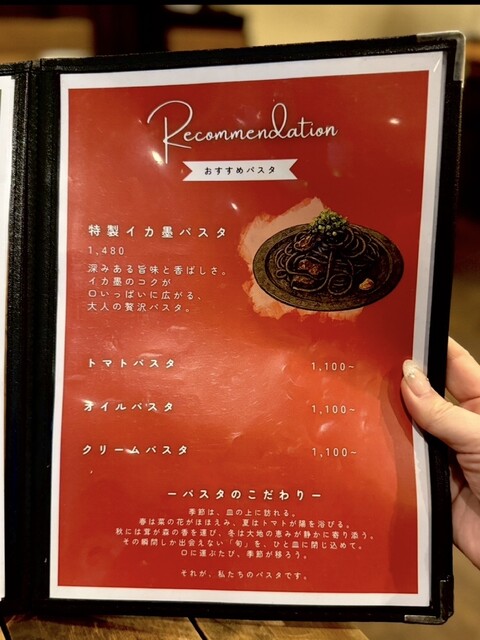 Recommendation
おすすめパスタ
特製イカ墨パスタ
1,480
深みある旨味と香ばしさ。
イカ墨のコクが
口いっぱいに広がる、
大人の贅沢パスタ。
トマトパスタ 1,100~
オイルパスタ 1,100~
クリームパスタ 1,100~
ーパスタのこだわりー
季節は、皿の上に訪れる。
春は菜の花がほほえみ、夏はトマトが陽を浴びる。
秋には茸が森の香を運び、冬は大地の恵みが静かに寄り添う。
その瞬間しか出会えない「旬」を、ひと皿に閉じ込めて。
口に運ぶたび、季節が移ろう。
それが、私たちのパスタです。